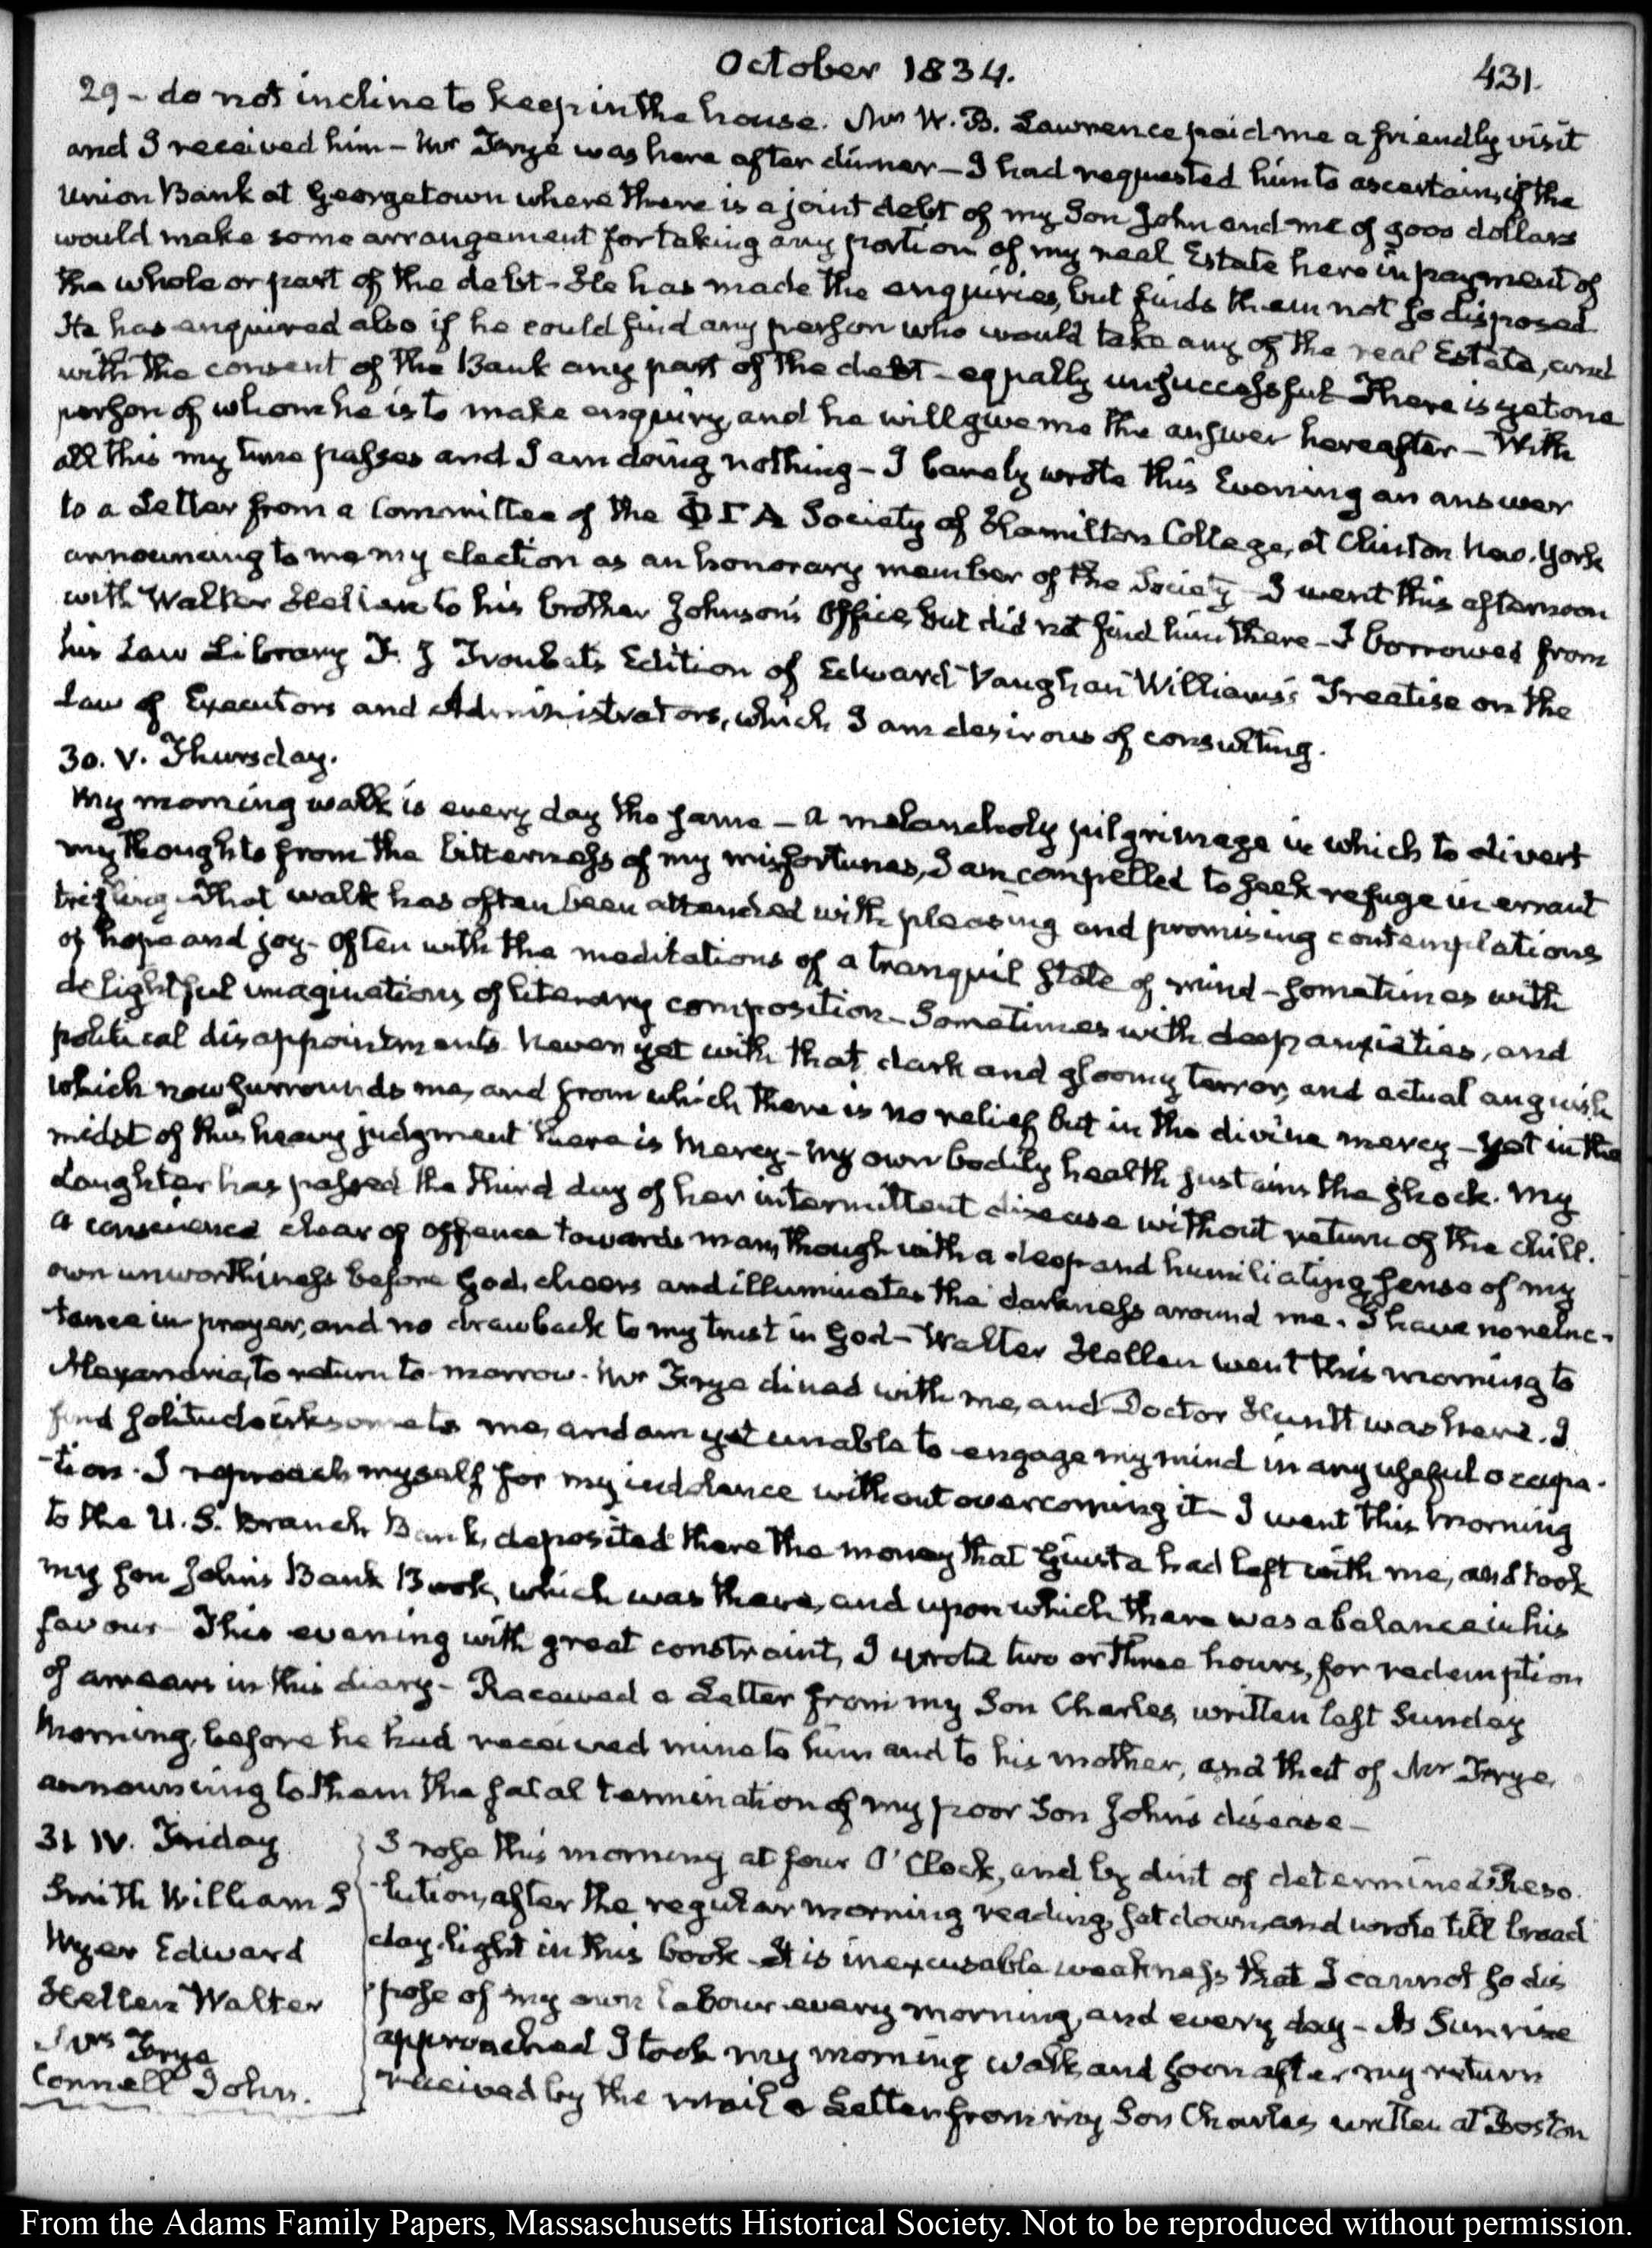 October 1834.
431.
29 – do not incline to keep in the house. Mr W. B. Lawrence paid me a friendly visit
and I received him – Mr Frye was here after dinner – I had requested him to ascertain, if the
Union Bank at Georgetown where there is a joint debt of my Son John and me of 9000 dollars
would make some arrangement for taking any portion of my real Estate here in payment of
the whole or part of the debt – He has made the enquiries, but finds them not so disposed
He has enquired also if he could find any person who would take any of the real Estate, and
with the consent of the Bank any part of the debt – equally unsuccessful – There is yet one
person of whom he is to make enquiry, and he will give me the answer hereafter – With
all this my time passes and I am doing nothing – I barely wrote this Evening an answer
to a Letter from a Committee of the Φ Γ Α Society of Hamilton College, at Clinton New-York
announcing to me my election as an honorary member of the Society – I went this afternoon
with Walter Hellen to his brother Johnson's Office, but did not find him there – I borrowed from
his Law Library F. J Troubat's Edition of Edward Vaughan Williams's Treatise on the
Law of Executors and Administrators, which I am desirous of consulting.
30. V. Thursday.
My morning walk is every day the same – a melancholy pilgrimage in which to divert
my thoughts from the bitterness of my misfortunes, I am compelled to seek refuge in errant
trifling – That walk has often been attended with pleasing and promising contemplations
of hope and joy – often with the meditations of a tranquil state of mind – sometimes with
delightful imaginations of literary composition – Sometimes with deep anxieties, and
political disappointments – never yet with that dark and gloomy terror, and actual anguish
which now surrounds me, and from which there is no relief but in the divine mercy – Yet in the
midst of this heavy judgment there is Mercy – My own bodily health sustains the shock. My
daughter has passed the third day of her intermittent disease without return of the chill.
A conscience clear of offence towards man, though with a deep and humiliating sense of my
own unworthiness before God, cheers and illuminates the darkness around me. I have no reluc-
-tance in prayer, and no drawback to my trust in God – Walter Hellen went this morning to
Alexandria, to return to-morrow. Mr Frye dined with me, and Doctor Huntt was here. I
find solitude irksome to me, and am yet unable to engage my mind in any useful occupa-
-tion. I reproach myself for my indolence without overcoming it – I went this morning
to the U. S. Branch Bank, deposited there the money that Giusta had left with me, and took
my Son John's Bank Book, which was there, and upon which there was a balance in his
favour – This evening with great constraint, I wrote two or three hours, for redemption
of arrears in this diary – Received a Letter from my Son Charles, written last Sunday
Morning, before he had received mine to him and to his mother, and that of Mr Frye,
announcing to them the fatal termination of my poor Son John's disease –
31 IV. Friday
Smith William S
Wyer Edward
Hellen Walter
Mrs Frye
Connell John.
I rose this morning at four O'Clock, and by dint of determined Reso-
-lution, after the regular morning reading, sat down, and wrote till broad
day-light in this book – It is inexcusable weakness that I cannot so dis
-pose of my own labour every morning, and every day – As Sunrise
approached I took my morning walk, and soon after my return
received by the mail a Letter from my Son Charles written at Boston
From the Adams Family Papers, Massachusetts Historical Society. Not to be reproduced without permission.